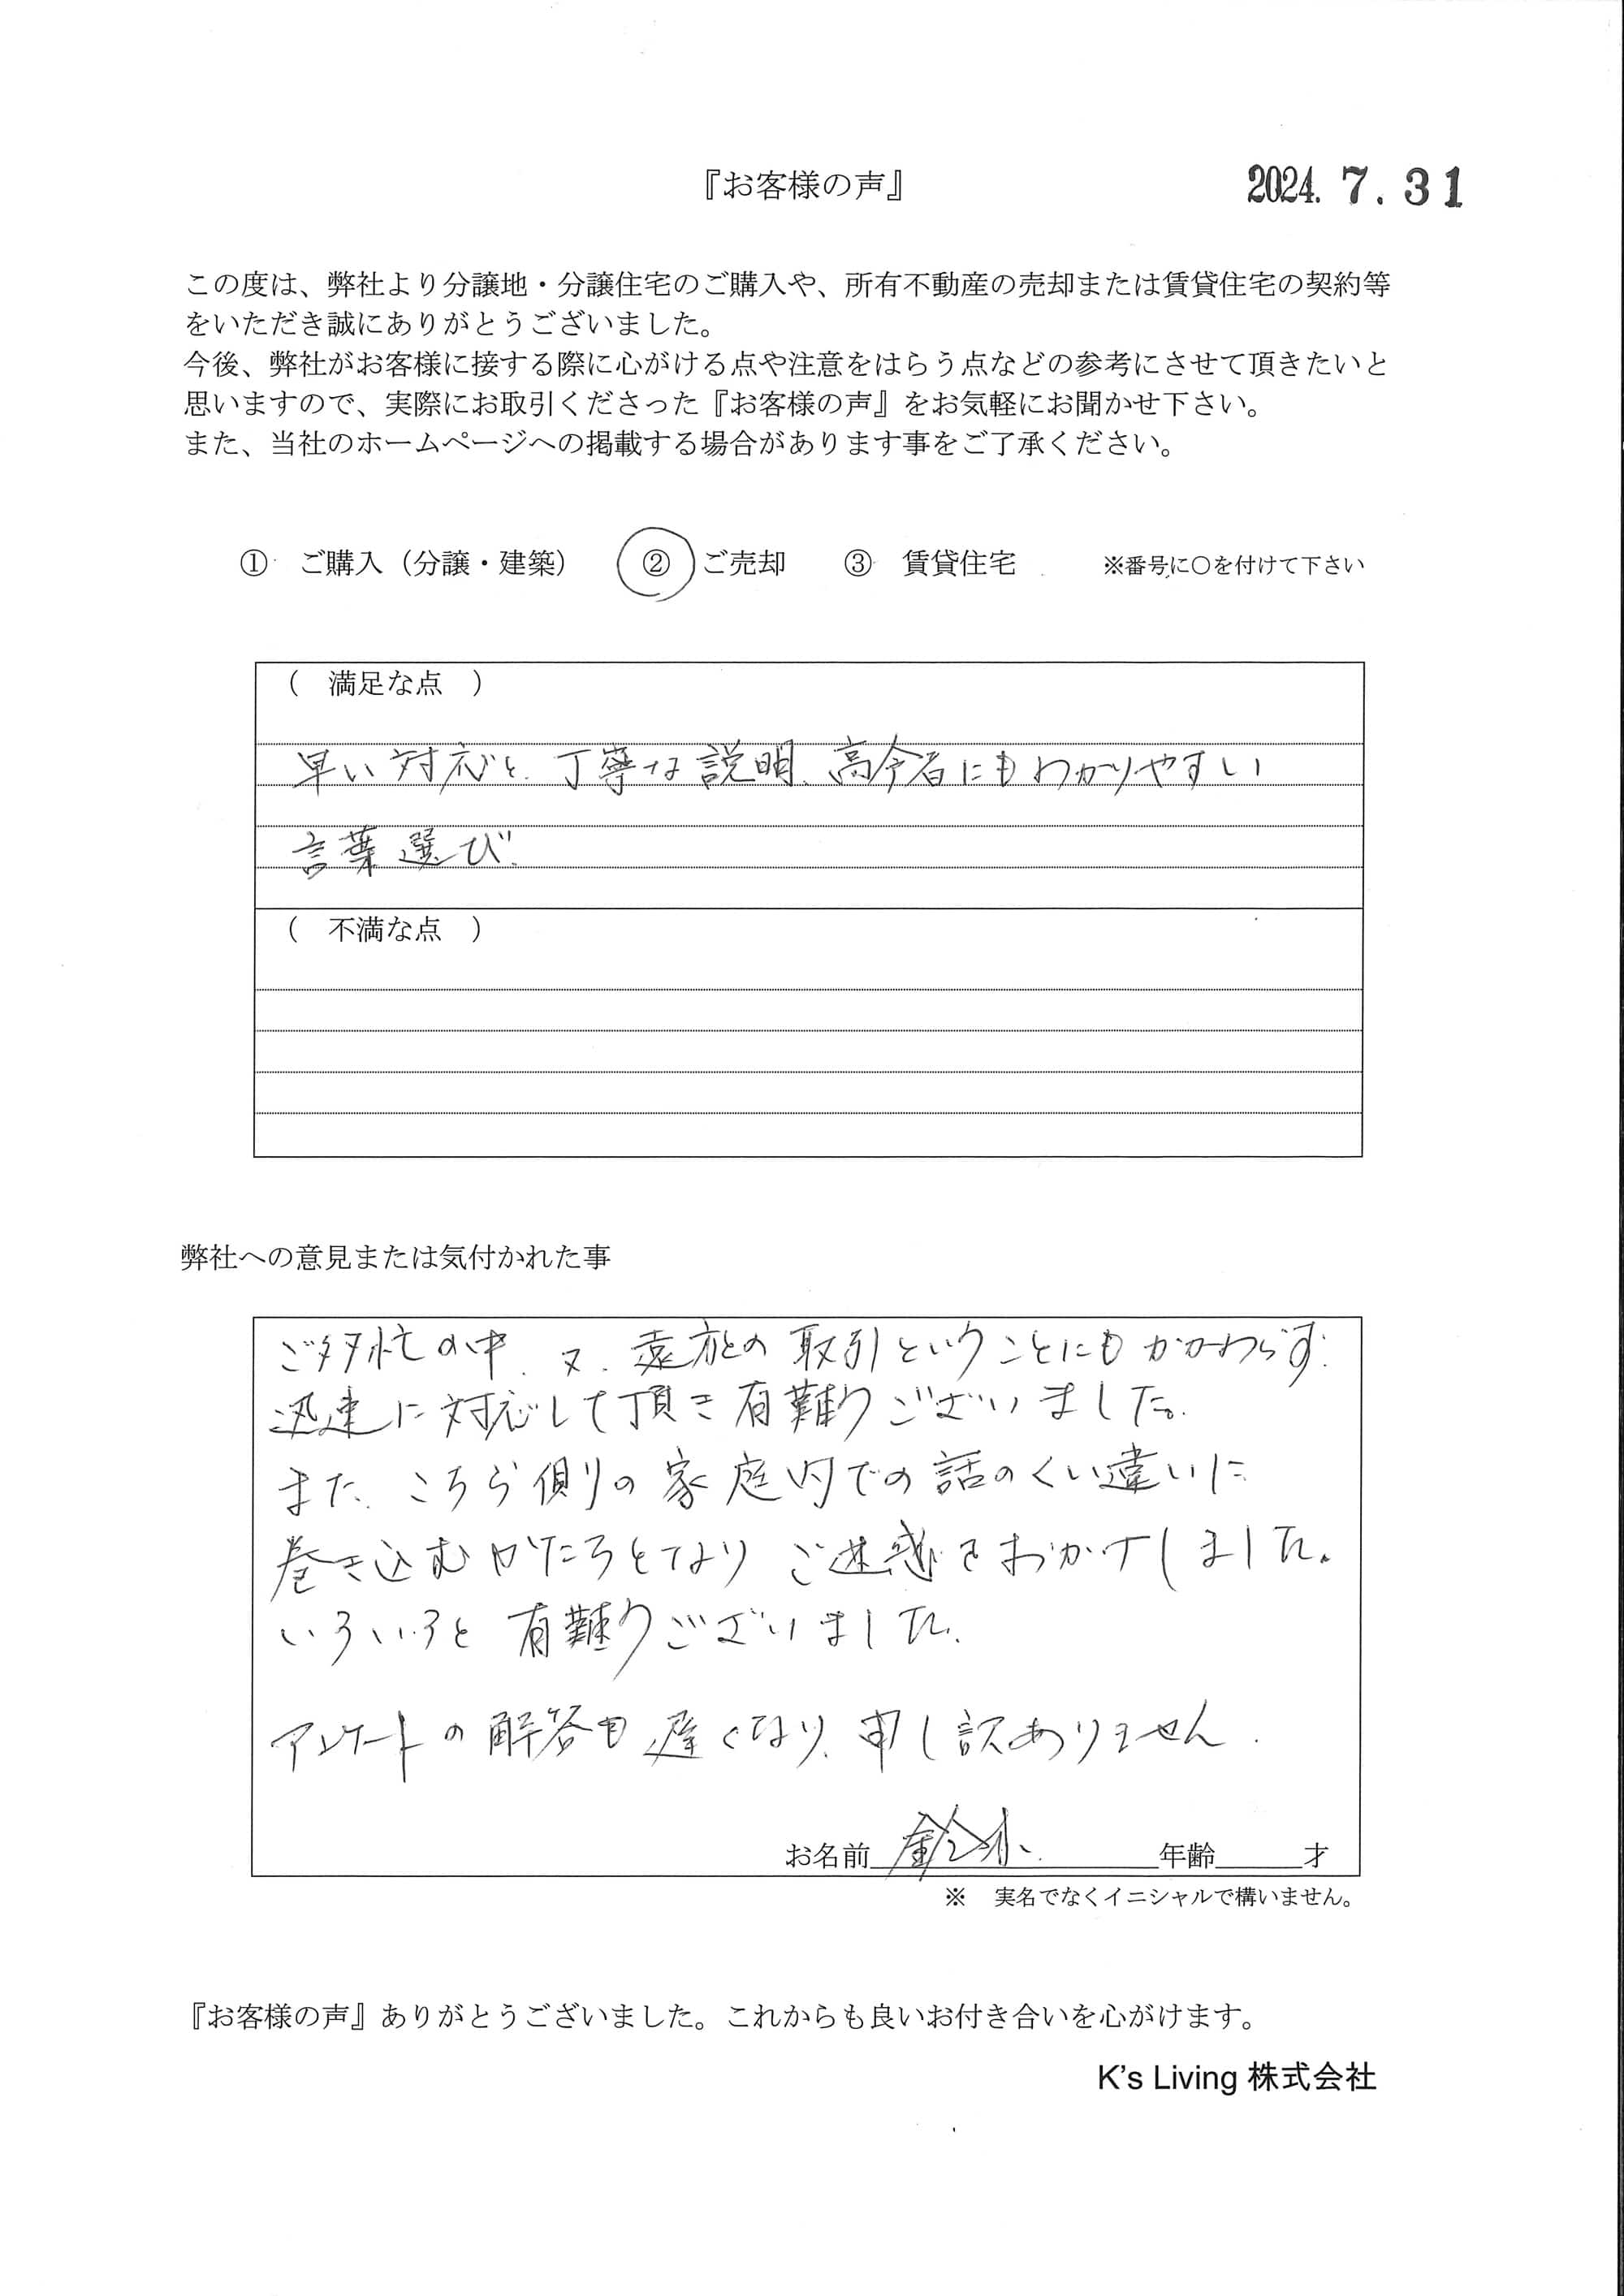 『お客様の声』
2024. 7. 31
この度は、弊社より分譲地・分譲住宅のご購入や、所有不動産の売却または賃貸住宅の契約等
をいただき誠にありがとうございました。
今後、弊社がお客様に接する際に心がける点や注意をはらう点などの参考にさせて頂きたいと
思いますので、実際にお取引くださった『お客様の声』をお気軽にお聞かせ下さい。
また、当社のホームページへの掲載する場合があります事をご了承ください。
① ご購入（分譲・建築） ② ご売却 ③ 賃貸住宅 ※番号に〇を付けて下さい
（ 満足な点 ）
早い対応と、丁寧な説明、高令者にもわかりやすい
言葉選び。
（ 不満な点 ）
弊社への意見または気付かれた事
ご多忙の中、又、遠方との取引ということにもかかわらず、
迅速に対応して頂き有難うございました。
また、こちら側の家庭内での話のくい違いに
巻き込むかたちとなりご迷惑をおかけしました。
いろいろと有難うございました。
アンケートの解答も遅くなり、申し訳ありません。
お名前 鈴木 年齢 才
※ 実名でなくイニシャルで構いません。
『お客様の声』ありがとうございました。これからも良いお付き合いを心がけます。
K's Living 株式会社